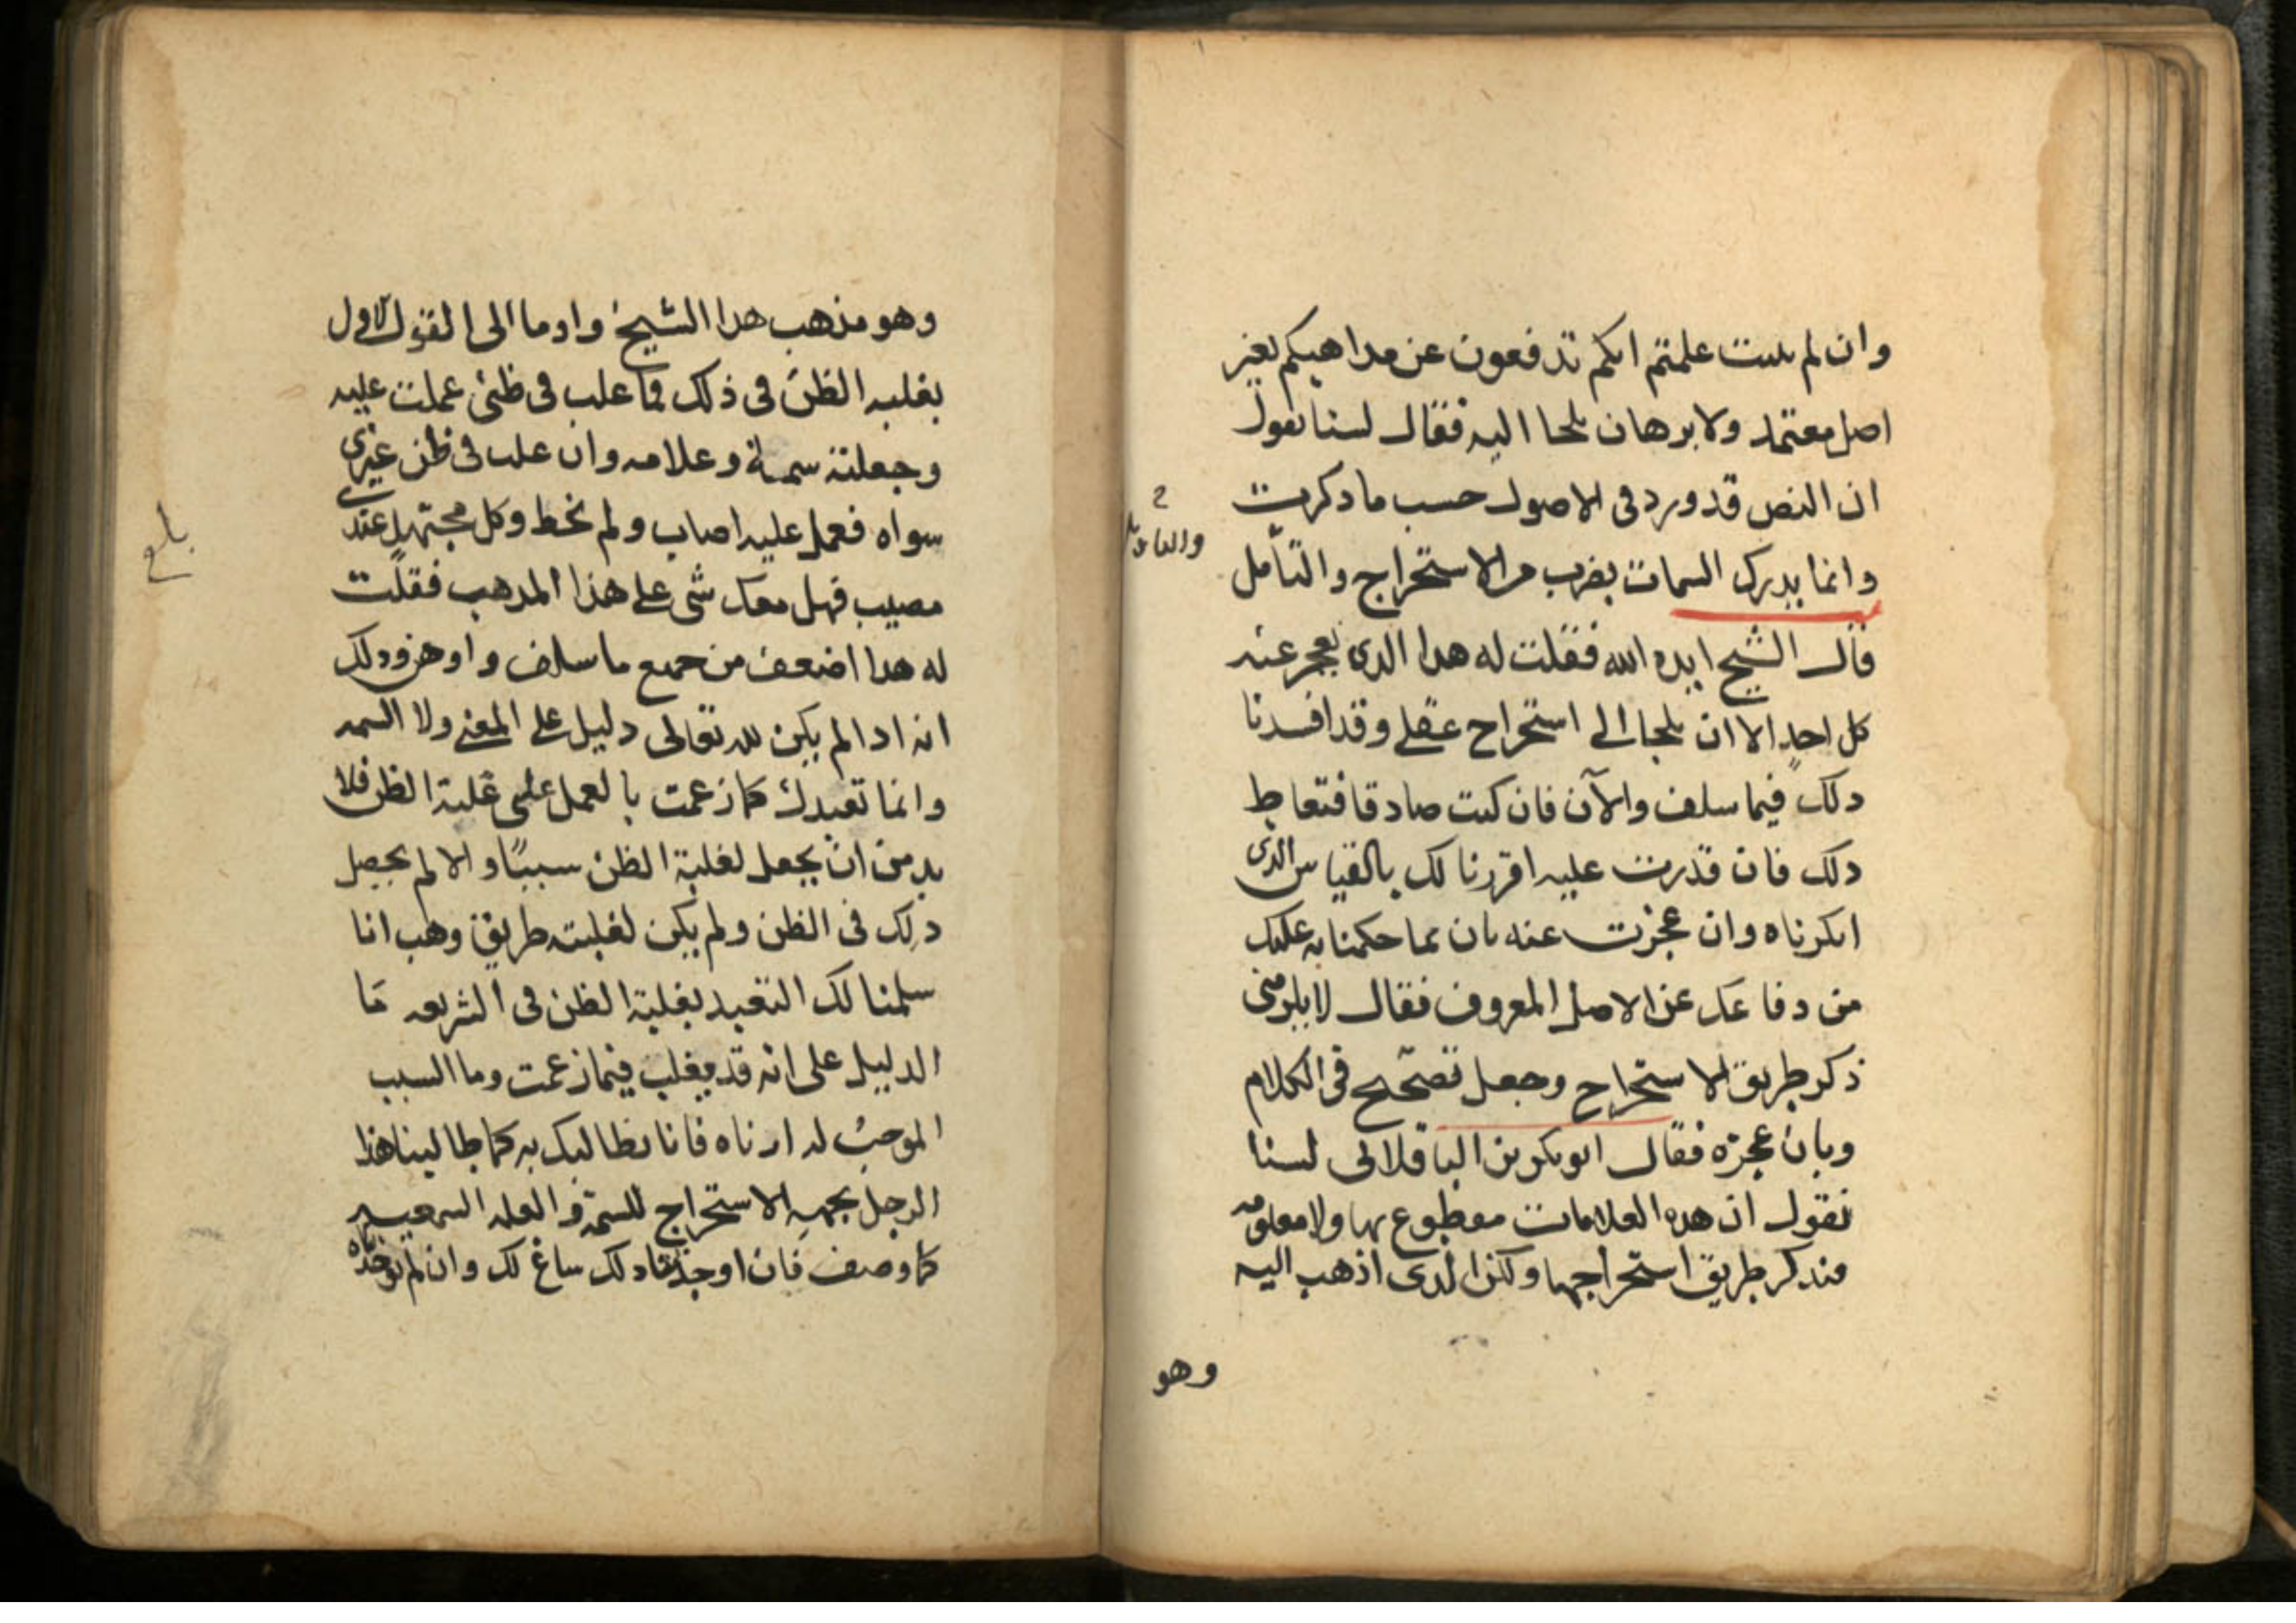 وان لم يثبت علمتم انكم تدفعون عن مداهبكم بغير
اصل معتمد ولا برهان يلجا اليه فقال لسنا نقول
ان النص قد ورد فى الاصول حسب ما دكرت
وانما يدرك السمات بضرب من الاستخراج والتأمل
قال الشيخ ايده الله فقلت له هدا الدى يعجز عنه
كل احدٍ الا ان يلجا الى استخراج عقلى وقد افسدنا
دلك فيما سلف والآن فان كنت صادقا فتعاط
دلك فان قدرت عليه اقررنا لك بالقياس الدى
انكرناه وان عجزت عنه بان بما حكمنا به عليك
من دفاعك عن الاصل المعروف فقال لا يلزمنى
ذكر طريق الاستخراج وجعل تصحيح فى الكلام
وبان عجزه فقال ابو بكر بن الباقلانى لسنا
نقول ان هده العلامات مقطوع بها ولا معلومه
فندكر طريق استخراجها ولكن الدى اذهب اليه
وهو
وهو مذهب هدا الشيخ واوما الى القول الاول
بغلبه الظن فى ذلك فما غلب فى ظنى عملت عليه
وجعلته سمة وعلامه وان غلب فى ظن غيرى
سواه فعمل عليه اصاب ولم يخط وكل مجتهدٍ عندى
مصيب فهل معك شى على هذا المدهب فقلت
له هدا اضعف من جميع ما سلف واوهن ودلك
انه ادا لم يكن لله تعالى دليل على المعنى ولا السمه
وانما تعبدك كما زعمت بالعمل على غلبة الظن فلا
بد من ان يجعل لغلبة الظن سببًا والا لم يحصل
دلك فى الظن ولم يكن لغلبته طريق وهب انا
سلمنا لك التعبد بغلبة الظن فى الشريعه ما
الدليل على انه قد يغلب فيما زعمت وما السبب
الموجب له ارناه فانا نطالبك به كما طالبنا هذا
الرجل بجهة الاستخراج للسمة والعله السمعيه
كما وصف فان اوجدتنا دلك ساغ لك وان لم توجدناه
بلغ